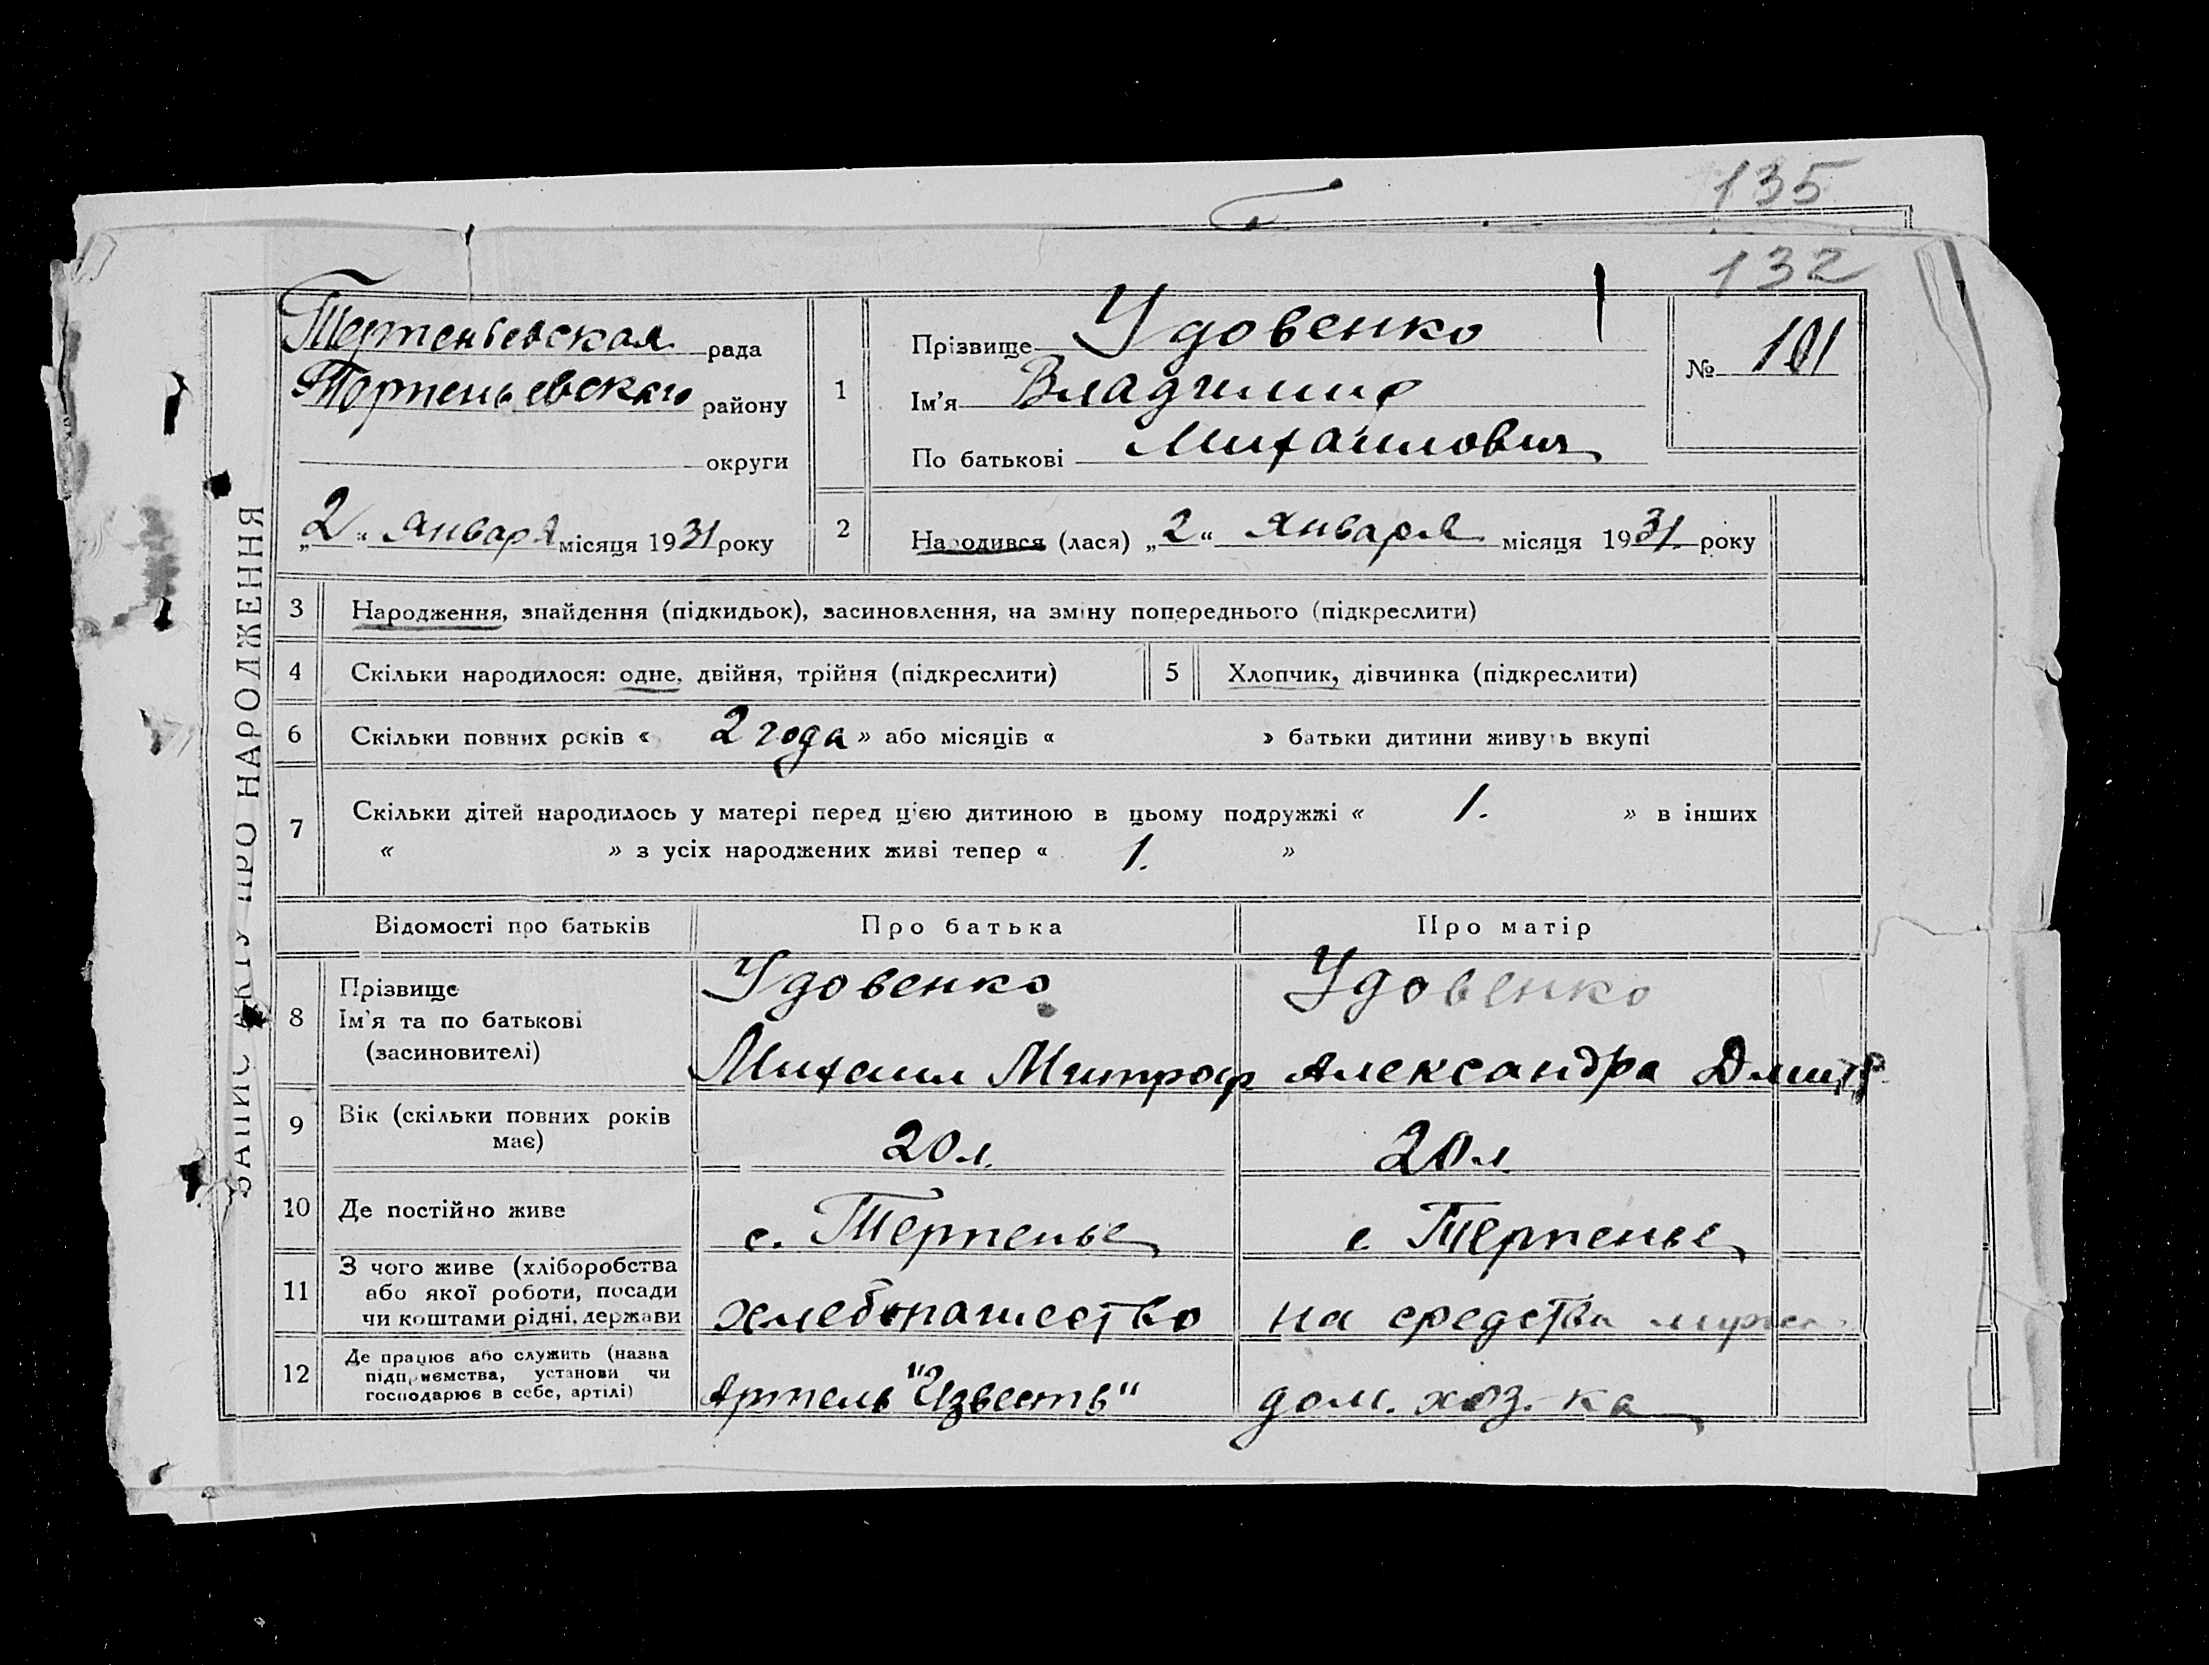 135
132
ЗАПИС АКТУ ПРО НАРОДЖЕННЯ
Терпеньевская рада
Терпеньевского району
округи
„2“ января місяця 1931 року
1
Прізвище Удовенко
Ім'я Владимир
По батькові Михаилович
№ 101
2
Народився (лася) „2“ января місяця 1931. року
3 Народження, знайдення (підкидьок), засиновлення, на зміну попереднього (підкреслити)
4 Скільки народилося: одне, двійня, трійня (підкреслити) 5 Хлопчик, дівчинка (підкреслити)
6 Скільки повних років « 2 года » або місяців « » батьки дитини живуть вкупі
7 Скільки дітей народилось у матері перед цією дитиною в цьому подружжі « 1. » в інших
« » з усіх народжених живі тепер « 1. »
Відомості про батьків Про батька Про матір
8 Прізвище
Ім'я та по батькові
(засиновителі)
Удовенко
Михаил Митроф
Удовенко
Александра Дмитр
9 Вік (скільки повних років
має)
20 л.
20 л.
10 Де постійно живе с. Терпенье с Терпенье
11 З чого живе (хліборобства
або якої роботи, посади
чи коштами рідні, держави
хлебопашество
на средства мужа
12 Де працює або служить (назва
підприємства, установи чи
господарює в себе, артілі)
Артель "Известь"
дом. хоз-ка